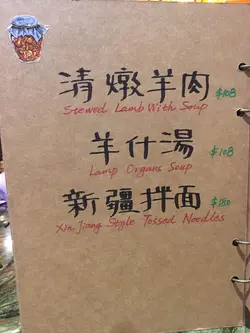 清燉羊肉 $108
Stewed Lamb With Soup
羊什湯 $108
Lamp Organs Soup
新疆拌面 $180
Xin Jiang Style Tossed Needles